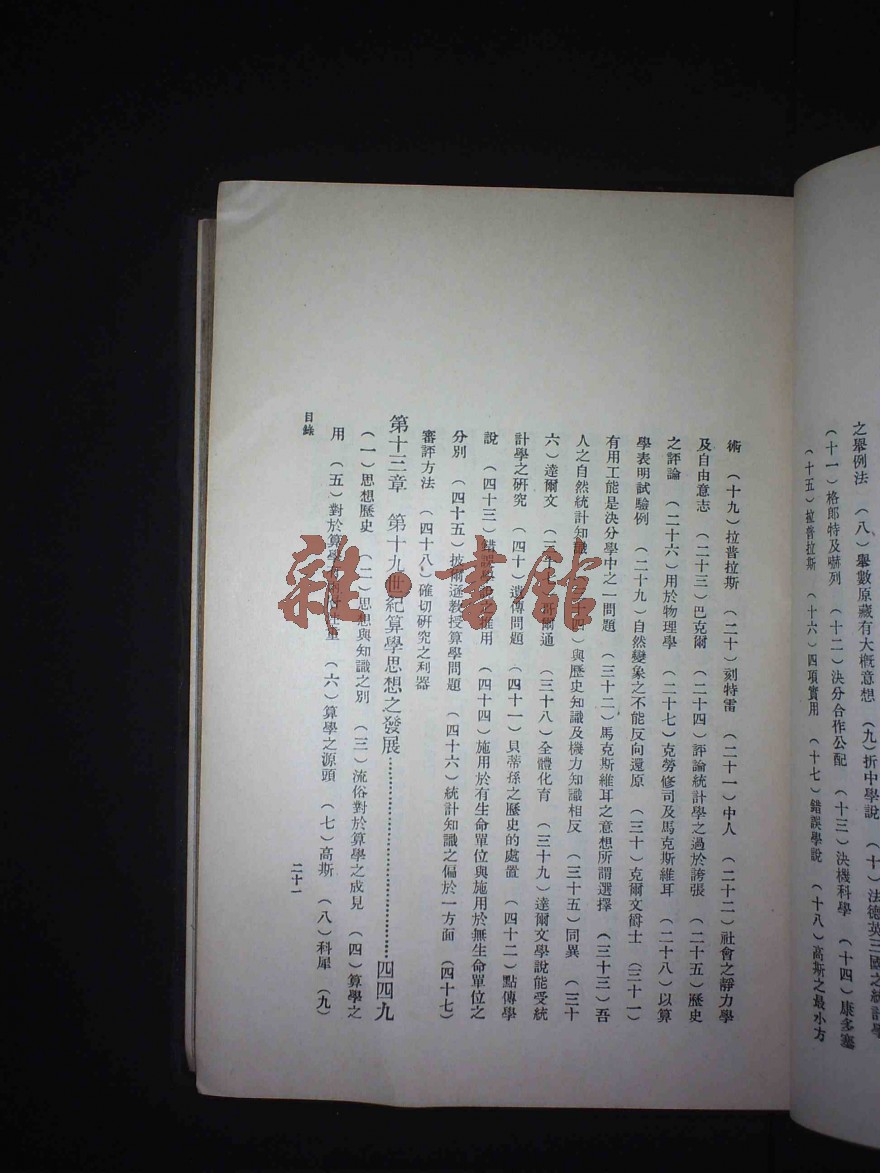 之舉例法　（八）舉數原藏有大概意想　（九）折中學說　（十）法德英三國之統計學
（十一）格郎特及嚇列　（十二）決分合作公配　（十三）決機科學　（十四）康多塞
（十五）拉普拉斯　（十六）四項實用　（十七）錯誤學說　（十八）高斯之最小方
術　（十九）拉普拉斯　（二十）刻特雷　（二十一）中人　（二十二）社會之靜力學
及自由意志　（二十三）巴克爾　（二十四）評論統計學之過於誇張　（二十五）歷史
之評論　（二十六）用於物理學　（二十七）克勞修司及馬克斯維耳　（二十八）以算
學表明試驗例　（二十九）自然變象之不能反向還原　（三十）克爾文爵士　（三十一）
有用工能是決分學中之一問題　（三十二）馬克斯維耳之意想所謂選擇　（三十三）吾
人之自然統計知識　（三十四）與歷史知識及機力知識相反　（三十五）同異　（三十
六）達爾文　（三十七）爾通　（三十八）全體化育　（三十九）達爾文學說能受統
計學之研究　（四十）遺傳問題　（四十一）貝蒂孫之歷史的處置　（四十二）點傳學
說　（四十三）錯誤學用　（四十四）施用於有生命單位與施用於無生命單位之
分別　（四十五）披爾遜教授算學問題　（四十六）統計知識之偏於一方面　（四十七）
審評方法　（四十八）確切研究之利器
第十三章　第十九世紀算學思想之發展……四四九
（一）思想歷史　（二）思想與知識之別　（三）流俗對於算學之成見　（四）算學之
用　（五）對於算學重　（六）算學之源頭　（七）高斯　（八）科犀　（九）
目錄
二十一
雜·書館